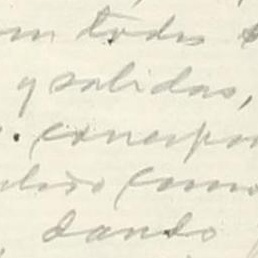 en todos
y salidas,
correspon
como
dando